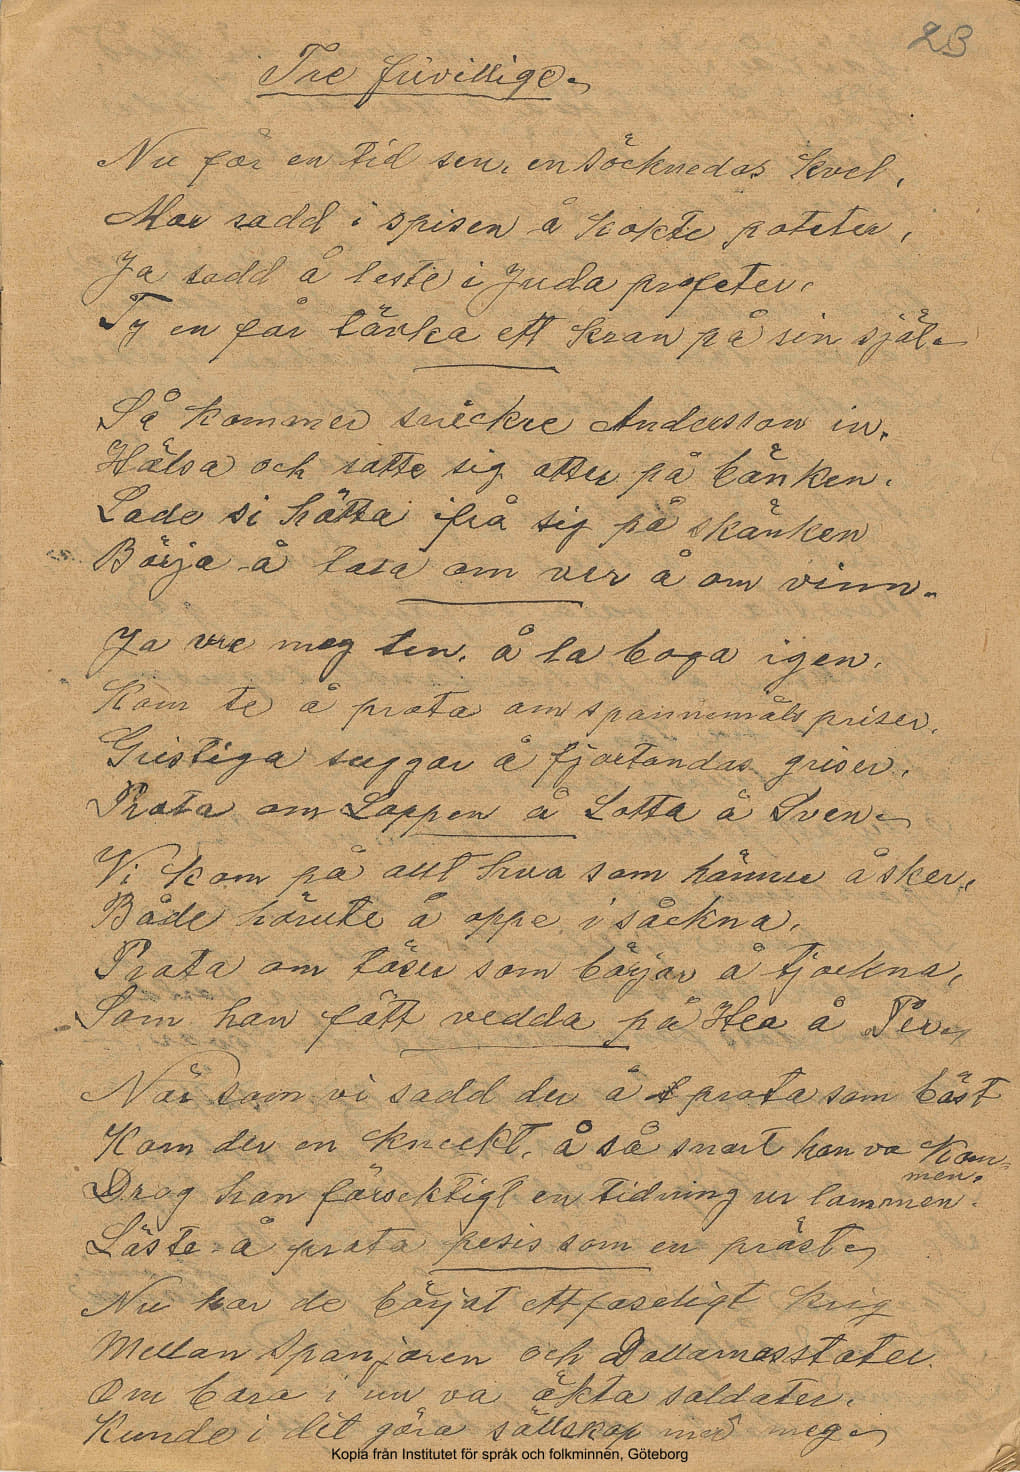 23
Tre frivillige.
Nu för en tid sen, en söcknedas kvel,
Mor sadd i spisen å kokte poteter,
Ja sadd å leste i Juda profeter,
Ty en får tänka ett kran på sin själ.
Så kommer snickre Andersson in.
Hälsa och satte sig atter på bänken.
Lade si hätta ifrå sig på skänken
Börja å tala om ver å om vinn.
Ja vre meg ten, å la boga igen.
Kom te å prata om spannemåls priser,
Gristiga suggor å fjortondas griser,
Prata om Loppen å Lotta å Sven.
Vi kom på allt hva som hänner å sker,
Både härute å oppe i såckna.
Prata om töser som börjar å tjockna,
Som han fått vedda på Hea å Per.
När som vi sadd der å prata som bäst
Kom der en kneckt, å så snart han va kommen.
Drog han försektigt en tidning ur lommen.
Läste å prata pesis som en präst.
Nu har de börjat ett faseligt krig
Mellan Spanjoren och Dollarnasstater.
Om bara i nu va äkta soldater.
Kunde i dit göra sällskap med meg.
Kopia från Institutet för språk och folkminnen, Göteborg